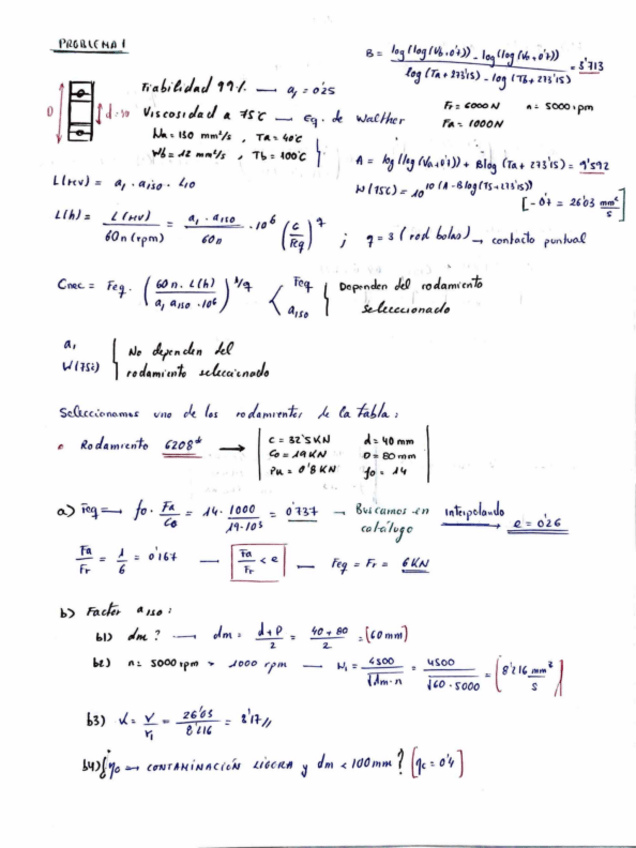 PROBLEMA 1
B = log(log(Va+0'7)) - log(log(Vb+0'7)) / log(Ta+273'15) - log(Tb+273'15) = 3'713
Fiabilidad 99% → a1 = 0'25
Fr = 6000N n = 5000 rpm
Fa = 1000N
D d=40 Viscosidad a 75ºC → Eq. de Walther
Va = 130 mm²/s , Ta = 40ºC
Vb = 12 mm²/s , Tb = 100ºC
A = log(log(Va+0'7)) + B log(Ta+273'15) = 9'592
V(75ºC) = 10^10^(A-B log(75+273'15)) [-0'7 = 26'03 mm²/s]
L(Mv) = a1 · aiso · L10
L(h) = L(Mv) / 60n(rpm) = a1 · aiso / 60n · 10⁶ (C/Feq)^q ; q = 3 (rod bolas) → contacto puntual
Cnec = Feq · (60n · L(h) / a1 aiso · 10⁶)^1/q < Feq aiso | Dependen del rodamiento seleccionado
a1
V(75ºC) } No dependen del rodamiento seleccionado
Seleccionamos uno de los rodamientos de la tabla:
• Rodamiento 6208* →
C = 32'5KN d = 40 mm
Co = 19KN D = 80 mm
Pu = 0'8KN fo = 14
a) Feq → fo · Fa/Co = 14 · 1000/19·10³ = 0'737 → Buscamos en catálogo interpolando → e = 0'26
Fa/Fr = 1/6 = 0'167 — Fa/Fr < e — Feq = Fr = 6KN
b) Factor aiso:
b1) dm? → dm = d+D/2 = 40+80/2 = (60mm)
b2) n = 5000 rpm > 1000 rpm — V1 = 4500/√dm·n = 4500/√60·5000 = (8'216 mm²/s)
b3) K = V/V1 = 26'03/8'216 = 3'17//
b4) ¿ηc → CONTAMINACIÓN LIGERA y dm < 100mm? [ηc = 0'4]